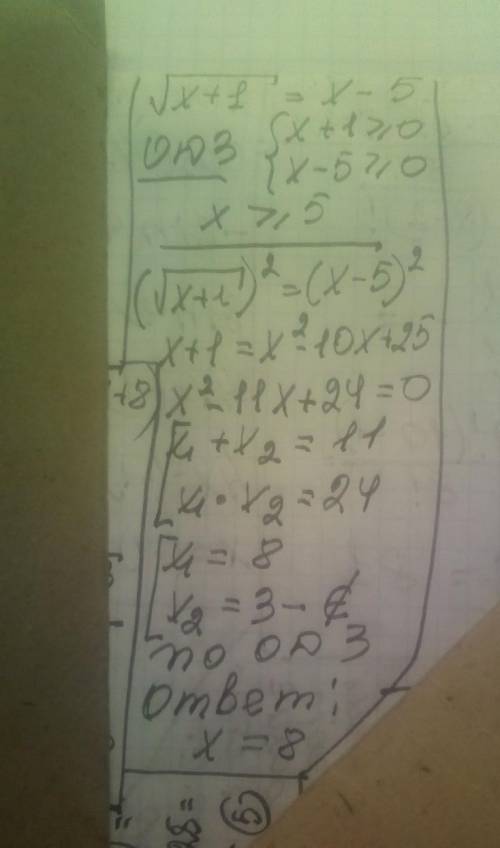 √x+1 = x - 5
ОДЗ { x+1 ⩾ 0
{ x-5 ⩾ 0
x ⩾ 5
(√x+1)² = (x-5)²
x+1 = x²-10x+25
+8) x²-11x+24=0
[ x₁ + x₂ = 11
x₁ · x₂ = 24
[ x₁ = 8
x₂ = 3 - ∉
по ОДЗ
Ответ:
x = 8
5